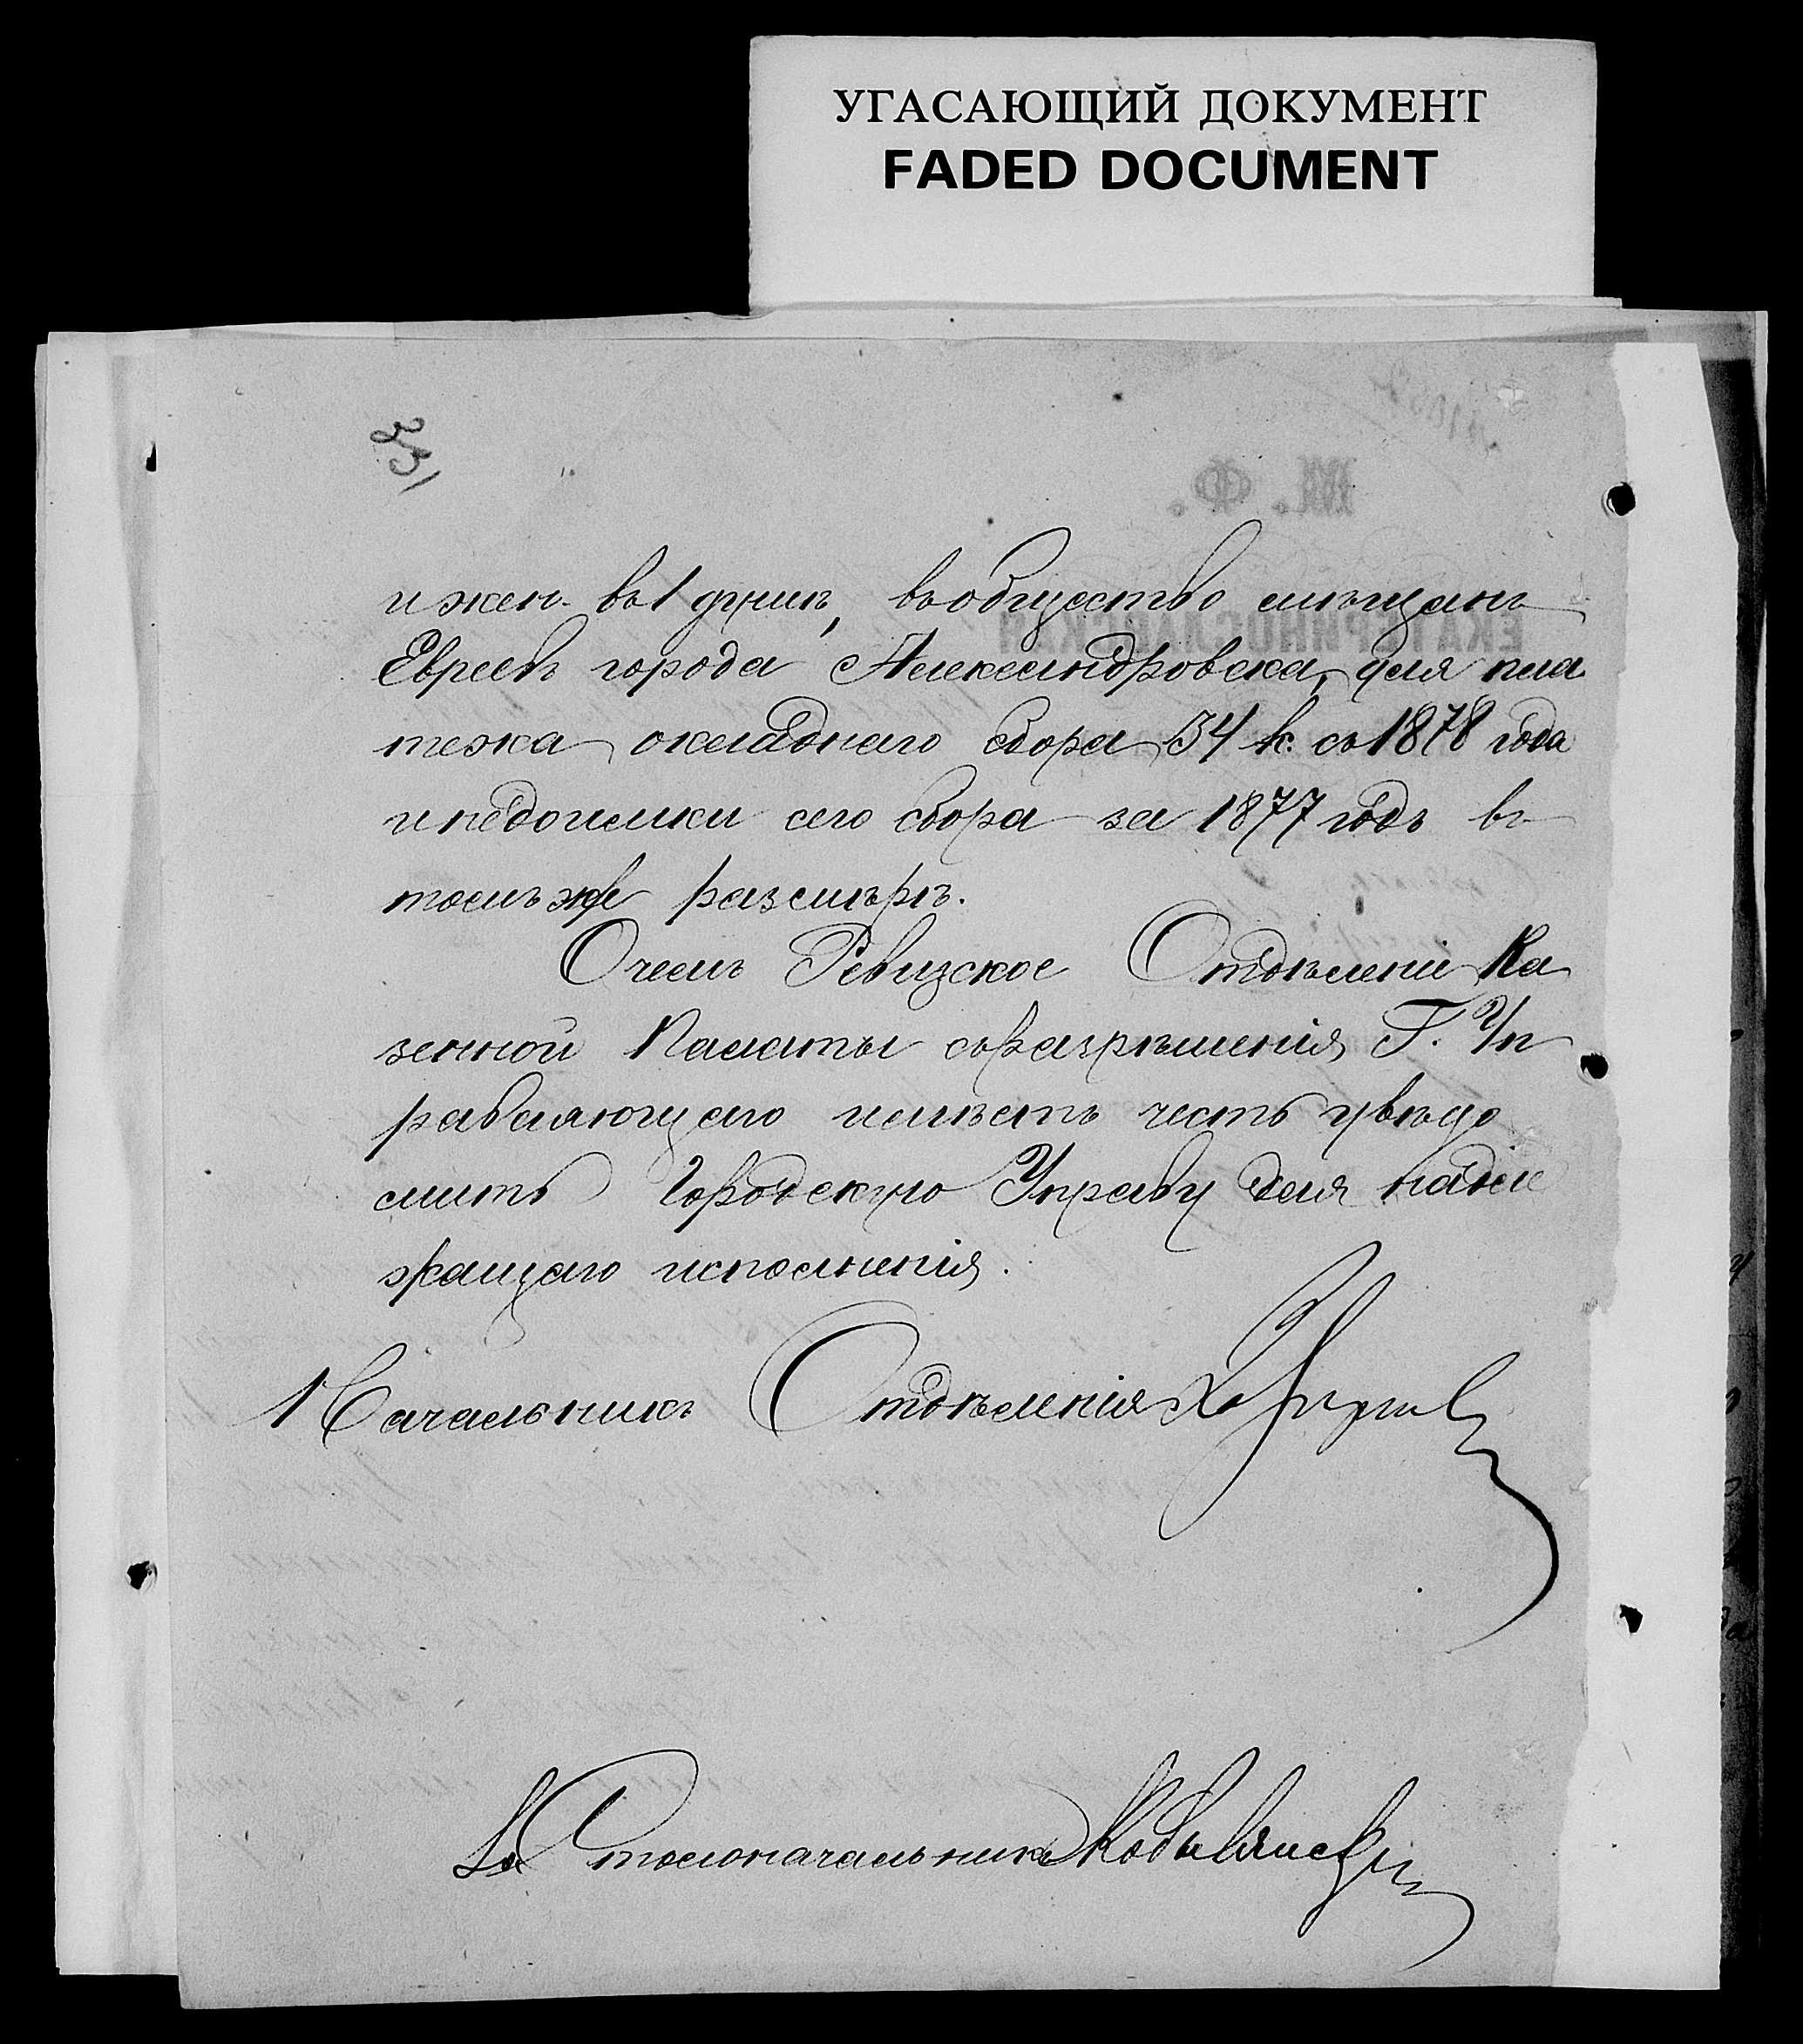 УГАСАЮЩИЙ ДОКУМЕНТ
FADED DOCUMENT
М. Ф.
ЕКАТЕРИНОСЛАВСКАЯ
и жен. въ 1 душѣ, въ общество мѣщанъ
Евреевъ города Александровска, для пла
тежа окладнаго сбора 54 к. съ 1878 года
и недоимки сего сбора за 1877 годъ въ
томъ же размѣрѣ.
О чемъ Ревизское Отдѣленіе Ка
зенной Палаты съ разрѣшенія Г. Уп
равляющаго имѣетъ честь увѣдо
мить Городскую Управу для надле
жащаго исполненія.
Начальникъ Отдѣленія
Столоначальника